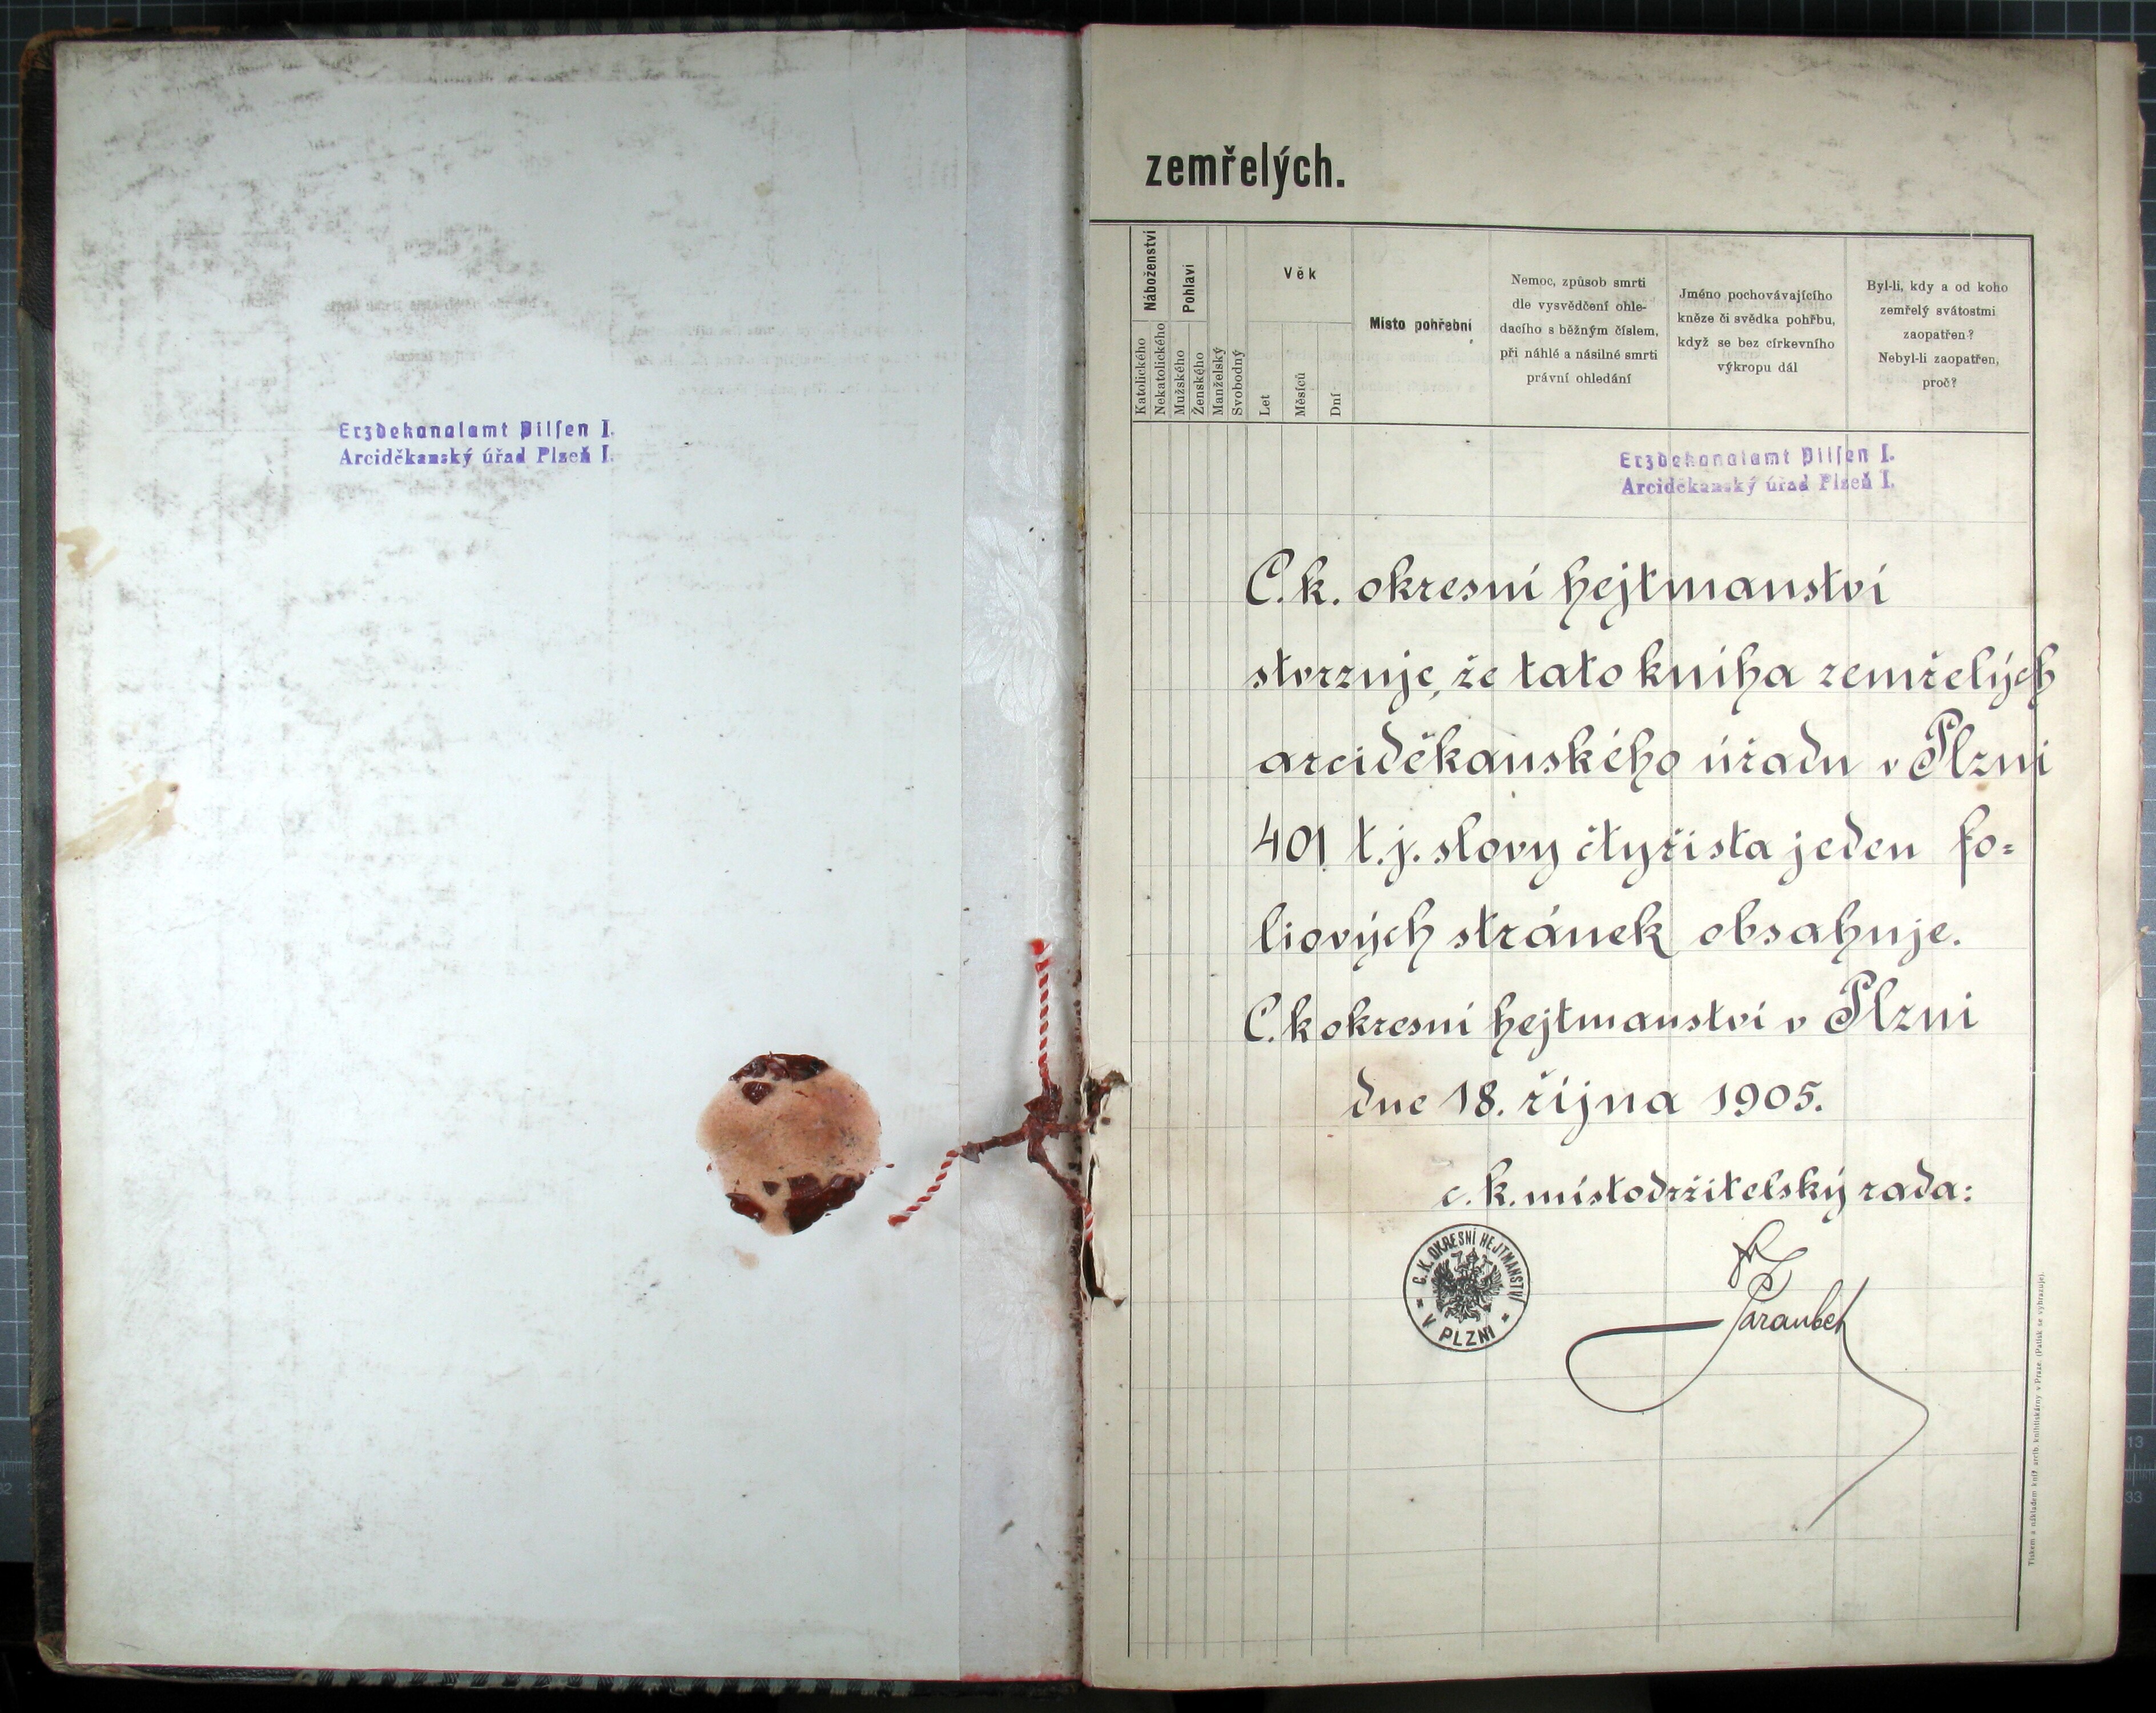 Erzdekanalamt Pilsen I.
Arciděkanský úřad Plzeň I.
zemřelých.
Náboženství
Katolického
Nekatolického
Pohlaví
Mužského
Ženského
Manželský
Svobodný
Věk
Let
Měsíců
Dní
Místo pohřební
Nemoc, způsob smrti
dle vysvědčení ohle-
dacího s běžným číslem,
při náhlé a násilné smrti
právní ohledání
Jméno pochovávajícího
kněze či svědka pohřbu,
když se bez církevního
výkropu dál
Byl-li, kdy a od koho
zemřelý svátostmi
zaopatřen?
Nebyl-li zaopatřen,
proč?
Erzdekanalamt Pilsen I.
Arciděkanský úřad Plzeň I.
C. k. okresní hejtmanství
stvrzuje, že tato kniha zemřelých
arciděkanského úřadu v Plzni
401 t. j. slovy čtyřista jeden fo=
liových stránek obsahuje.
C. k okresní hejtmanství v Plzni
dne 18. října 1905.
c. k. místodržitelský rada:
C. K. OKRESNÍ HEJTMANSTVÍ
V PLZNI
Tiskem a nákladem kníž. arcib. knihtiskárny v Praze. (Patisk se vyhrazuje).